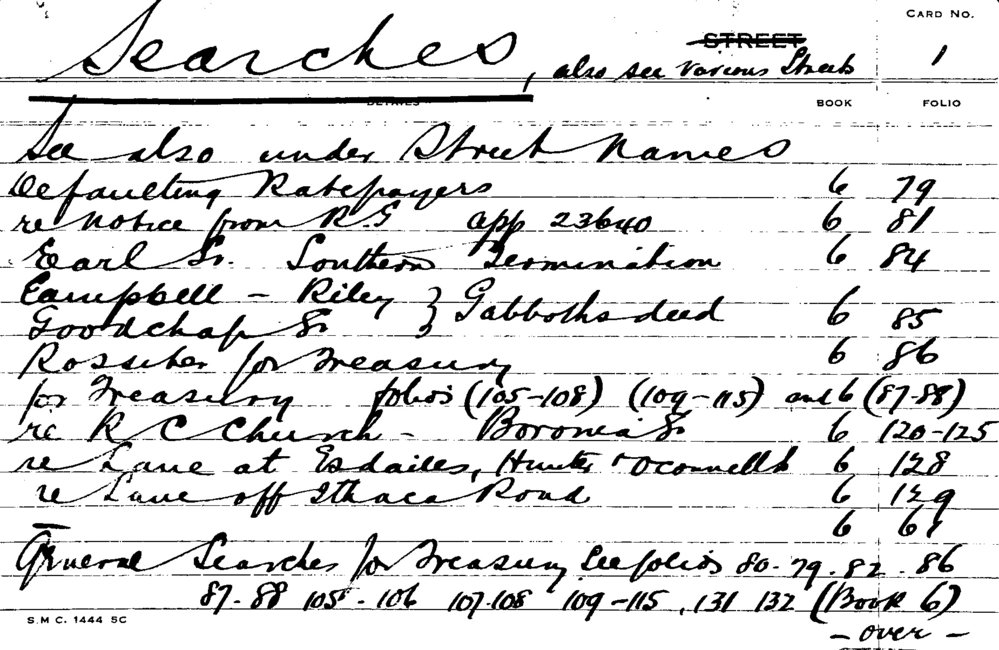 CARD No.
Searches, also see various Streets STREET 1
DETAILS BOOK FOLIO
See also under Street Names
Defaulting Ratepayers 6 79
re notice from R.G app 23640 6 81
Earl St. Southern Termination 6 84
Campbell - Riley } Gabboths deed
Goodchap St 6 85
Rossiter for Treasury 6 86
for Treasury folios (105-108) (109-115) and 6 (87-88)
re R C Church - Boronia St 6 120-125
re Lane at Esdailes, Hunter & Oconnell St 6 128
re Lane off Ithaca Road 6 129
6 61
General Searches for Treasury See folios 80-79-82-86
87-88 105-106 107-108 109-115, 131 132 (Book 6)
S.M.C. 1444 SC
- over -